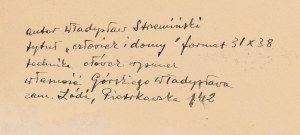 autor Władysław Strzemiński
tytuł „człowiek i domy" format 31 x 38
technika ołówek rysunek
własność Górskiego Władysława
zam. Łódź, Piotrkowska 142